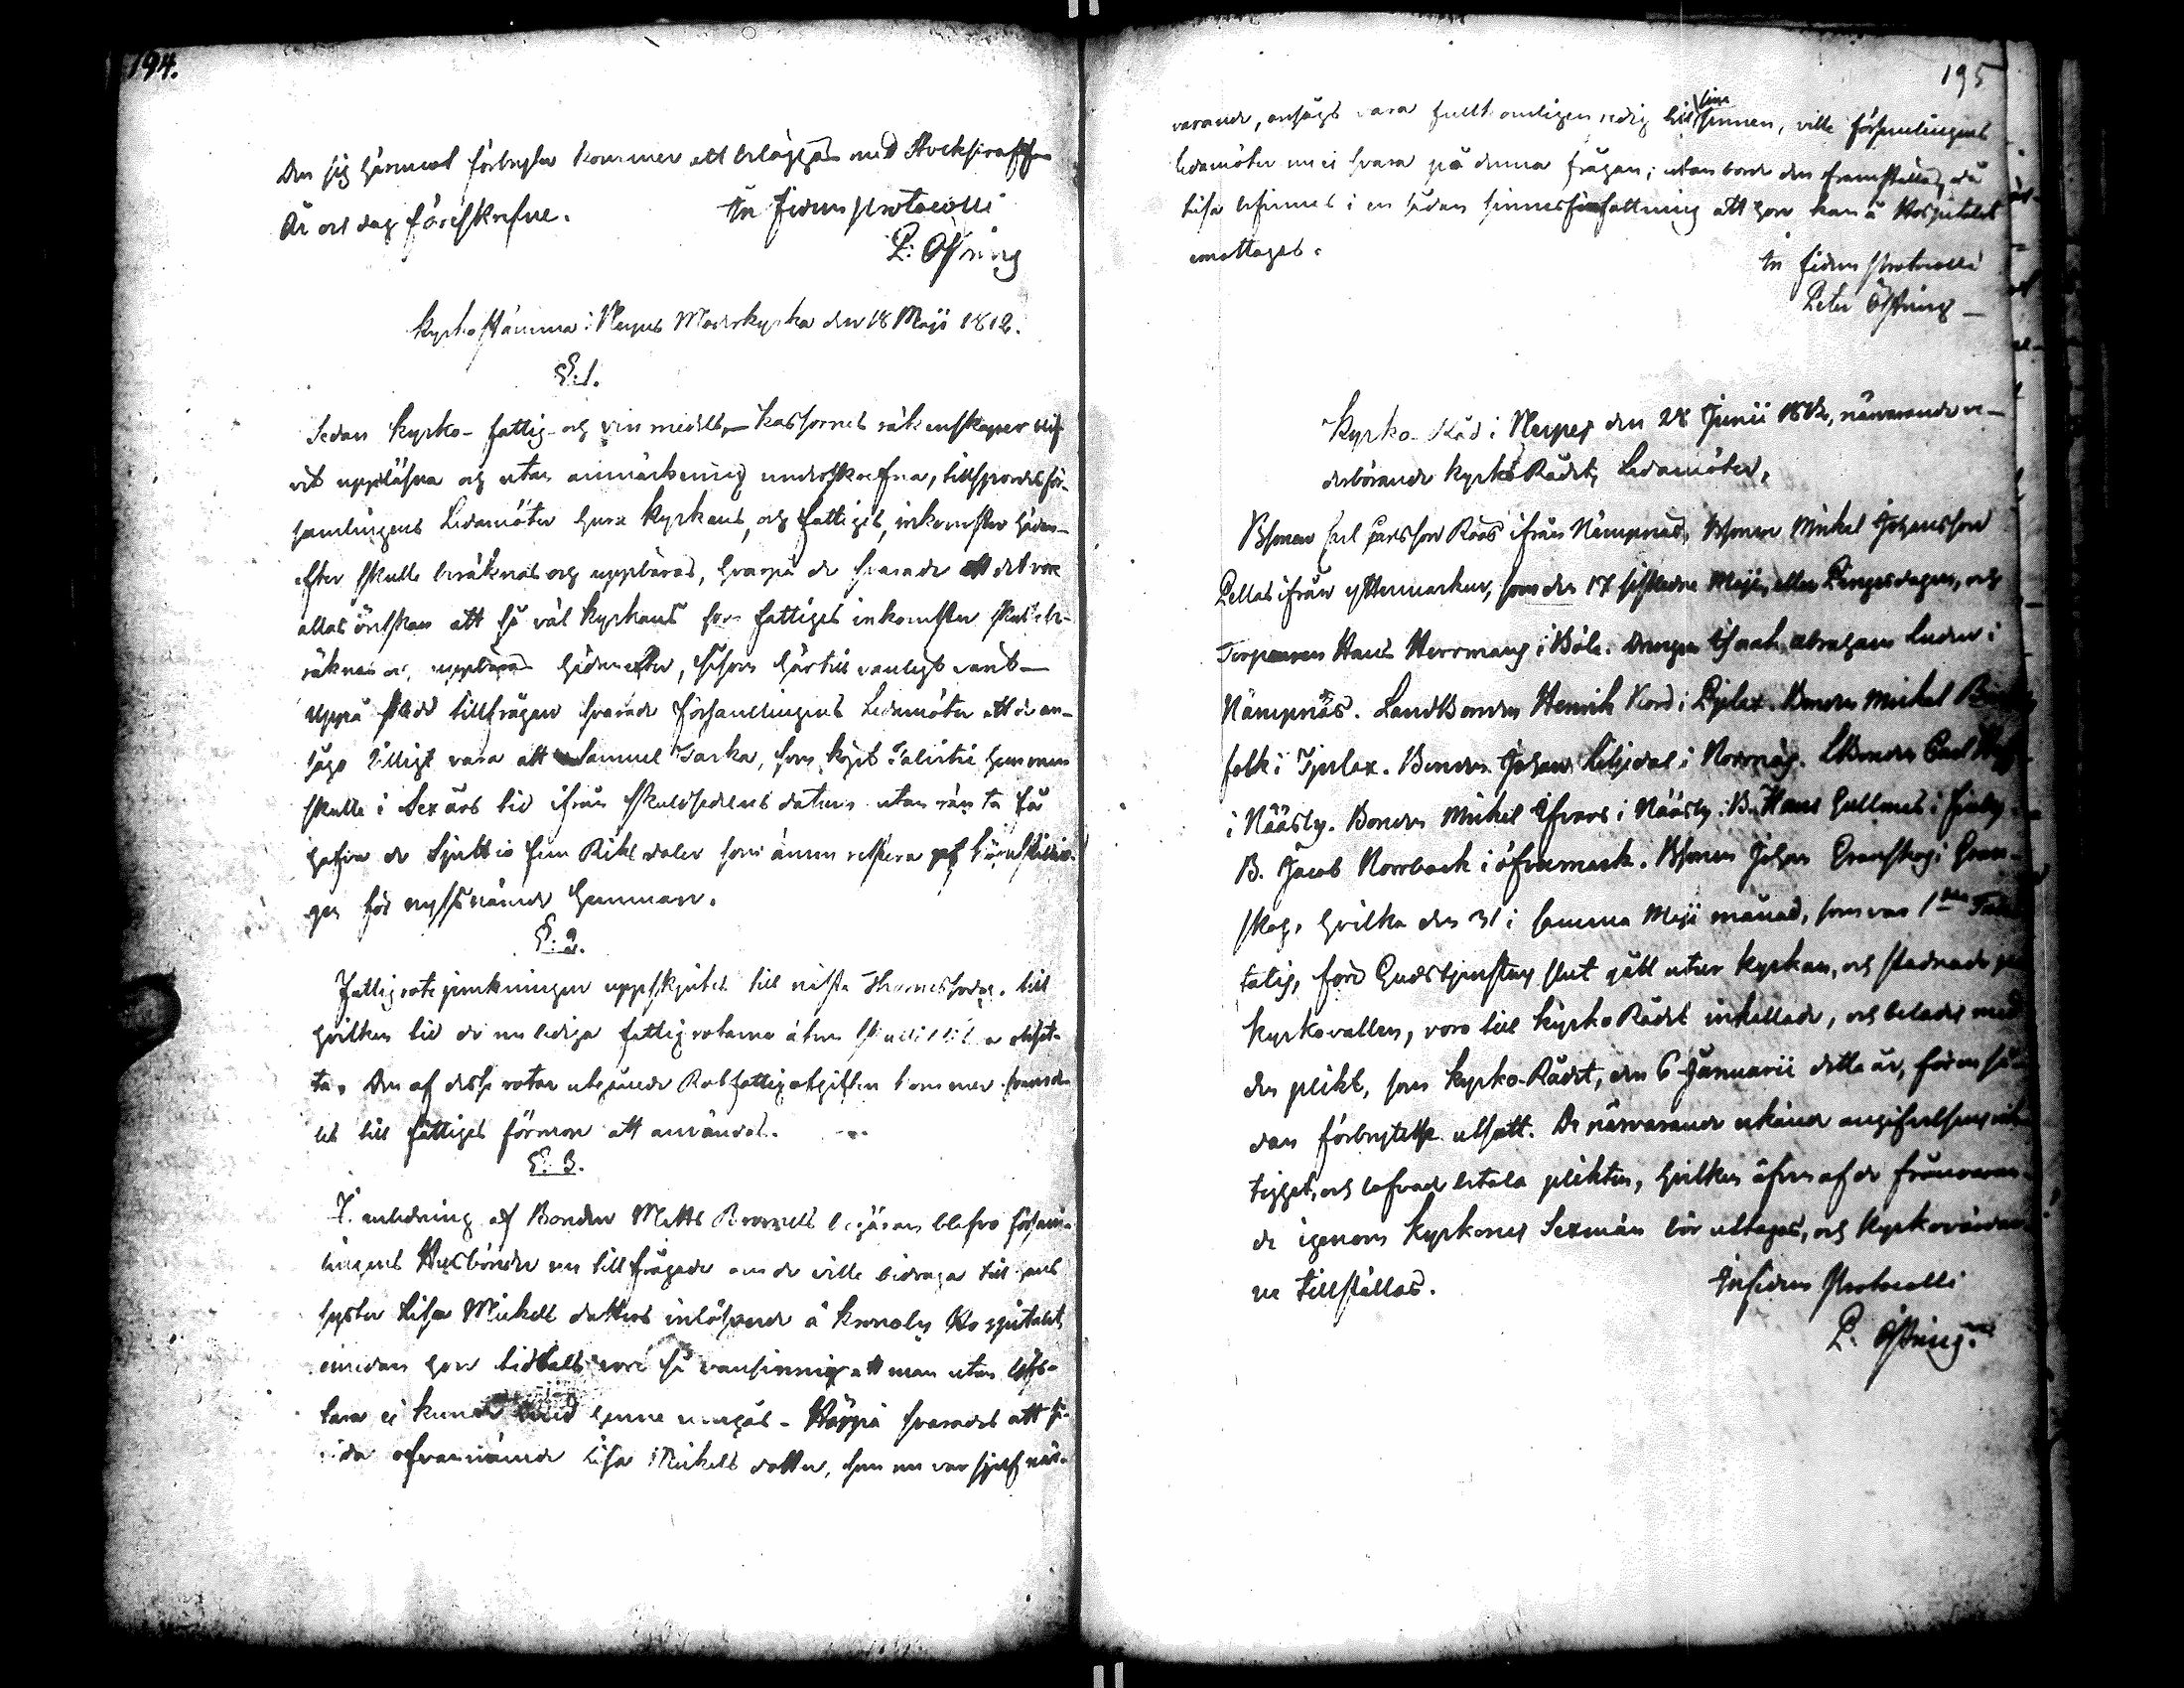 194.
den sig härmed förbryter kommer att beläggas med Stockstraffen
År och dag föreskrefne. In fidem Protocolli
P: Östring
Kyrkostämma i Nerpes Moderkyrka den 18 Maji 1812.
§. 1.
Sedan Kyrko- fattig- och vinmedels-kassornes räkenskaper blif-
vit uppläsna och utan anmärkning underskrefna, tillspordes för-
samlingens Ledamöter huru Kyrkans, och fattiges, inkomster häden-
efter skulle beräknas och uppbäras, hvarpå de svarade att det vore
allas önskan att så väl Kyrkans som fattiges inkomster skulle be-
räknas och uppbäras hädanefter, såsom härtill vanligt varit —
Uppå skedd tillfrågan svarade Församlingens Ledamöter att de an-
sågo billigt vara att Samuel Tarka, som köpt hemman
skulle i Sex års tid ifrån skuldsedelns datum utan ränta få
hafva de Sjuttio fem Riksdaler som ännu restera af köpeskillin-
gen för nyssnämnde hemman.
§: 2.
Fattigrotejemkningen uppskjutes till nästa Thomæsondag, till
hvilken tid de nu lediga fattigrotarne åter obesat-
ta. Den af desse rotar utgående Rotfattigafgiften kommer framde-
les till fattiges förmon att användas.
§: 3.
I anledning af Bonden Matts begäran blefvo försam-
lingens Husbönder nu tillfrågade om de ville bidraga till hans
syster Lisa Mickels dotters inlösande å Kronoby Hospitalet,
emedan hon tidtals vore så vansinnig att man utan lifs-
fara ej kunde med henne umgås - Härpå svarades att så-
ofvannämnde Lisa Mickels dotter, som nu var sjelf när-
195
varande, ansågs vara fullkomligen redig till sina sinnen, ville församlingens
ledamöter nu ej svara på denna frågan; utan borde den framställas, då
Lisa befinnes i en sådan sinnesförfattning att hon kan å Hospitalet
emottagas.
In fidem Protocolli
Peter Östring —
Kyrko-Råd i Nerpes den 28 Junii 1812, närvarande ve-
derbörande Kyrko Rådets Ledamöter,
Bsonen Carl Carlsson Roos ifrån Nämpnäs, Bsonen Mickel Johansson
Pellas ifrån Yttermarken, som den 17 sistledne Maji, eller Pingesdagen, och
Torparen Hans Herrmans i Böle. Drengen Isaak Abraham Luden i
Nämpnäs. LandBonden Henrik Nord i Pjelax. Bonden Mickel
folk i Tjerlax. Bonden Johan Liljedal i Norrnäs. LBonden Carl
i Nääsby. Bonden Mickel Ifvars i Nääsby. B. Hans Gullans i Finby
B. Jacob Norrback i Öfvermark. Bsonen Johan Granskog i Gran-
skog, hvilka den 31 i samma Maji månad, som var 1sta
talig, före Gudstjenstens slut gått utur kyrkan, och stadnade på
kyrkovallen, voro till Kyrko Rådet inkallade, och belades med
den plikt, som Kyrko-Rådet, den 6 Januarii detta år, för en så-
dan förbrytelse utsatt. De närvarande erkände angifvelsens rik-
tighet, och lofvade betala plikten, hvilken äfven af de frånvaran-
de igenom Kyrkones Sexmän bör uttagas, och Kyrkovärdar-
ne tillställas. In fidem Protocolli
P. Östring.